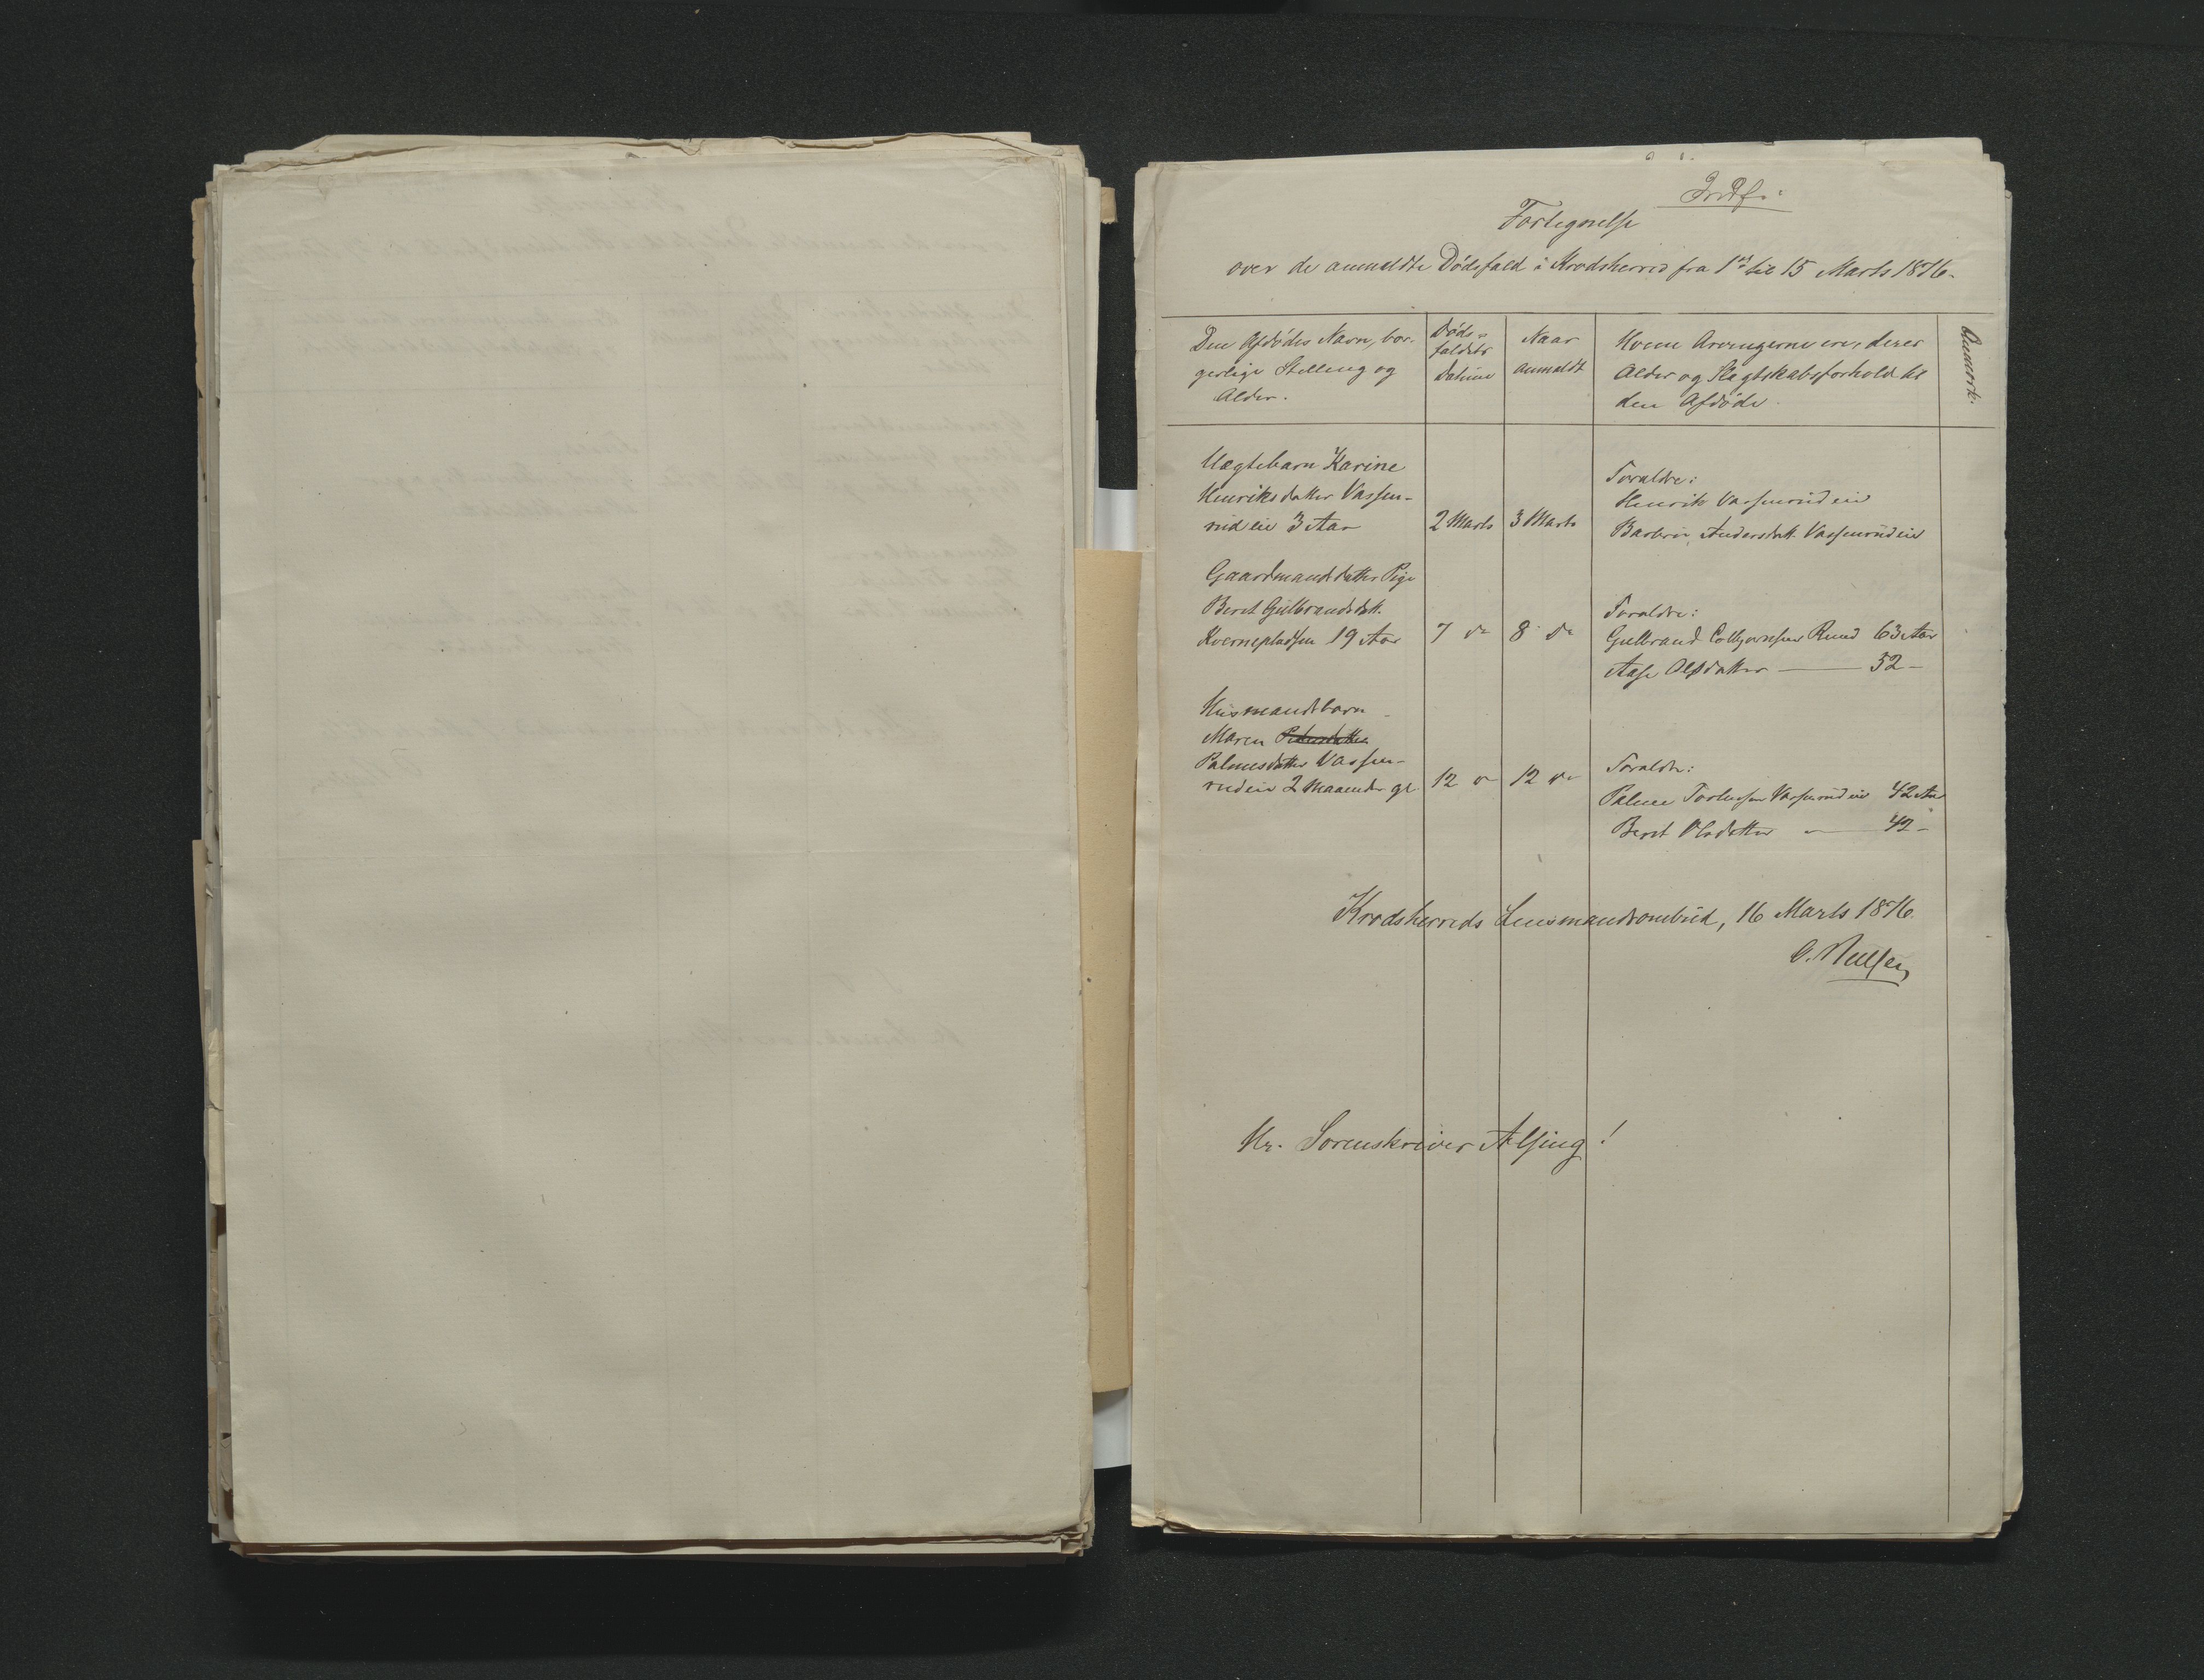 Fortegnelse
over de anmeldte Dødsfald i Krødsherred fra 1st til 15 Marts 1876.
Den Afdødes Navn, bor-
gerlige Stilling og
Alder.
Døds-
faldets
Datum
Naar
anmeldt
Hvem Arvingerne ere, deres
Alder og Slægtskabsforhold til
den Afdøde.
Anmærk.
Uægtebarn Karine
Henriksdatter Vassen-
rudeie 3 Aar
2 Marts
3 Marts
Forældre:
Henrik Vassenrudeie
Andersdatt. Vassenrudeie
Gaardmandsdatter Pige
Beret Gulbrandsdatt.
Kvernepladsen 19 Aar
7 do
8 do
Forældre:
Gulbrand Colbjørnsen Ruud 63 Aar
Aase Olsdatter — 52 —
Husmandsbarn
Maren Pedersdatter
Palmesdatter Vassen-
rudeie 2 Maaneder gl.
12 do
12 do
Forældre:
Palme Vassenrudeie 42 Aar
Beret Olsdatter — 42 —
Krødsherreds Lensmandsombud, 16 Marts 1876.
O. Nielsen
Hr. Sorenskriver Alsing!